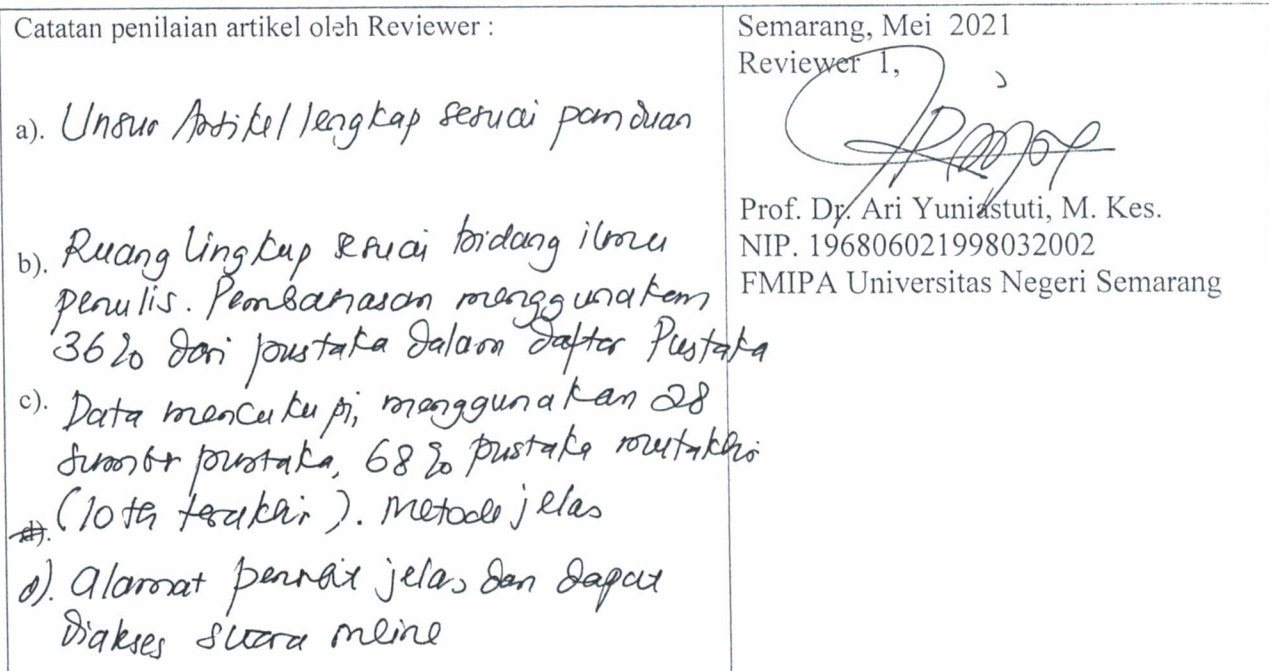 Catatan penilaian artikel oleh Reviewer :
a). Unsur Artikel lengkap sesuai panduan
b). Ruang lingkup sesuai bidang ilmu
penulis. Pembahasan menggunakan
36% dari pustaka dalam daftar Pustaka
c). Data mencukupi, menggunakan 28
sumber pustaka, 68% pustaka mutakhir
(10 th terakhir). Metode jelas
d). Alamat penerbit jelas dan dapat
diakses secara online
Semarang, Mei 2021
Reviewer 1,
Prof. Dr. Ari Yuniastuti, M. Kes.
NIP. 196806021998032002
FMIPA Universitas Negeri Semarang